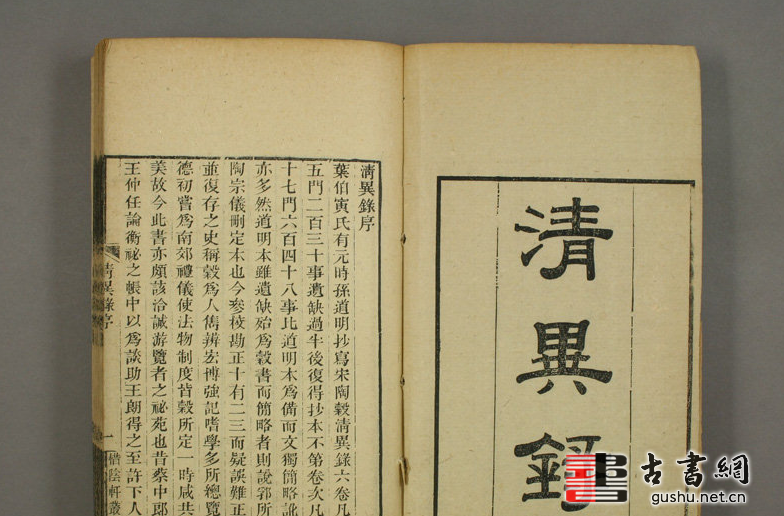 清異錄
清異錄序
葉伯寅氏有元時孫道明抄寫宋陶穀清異錄六卷凡
五門二百三十事遺缺過半後復得抄本不第卷次凡
十七門六百四十八事比道明本爲備而文獨簡略訛
亦多然道明本雖遺缺殆爲穀書而簡略者則說郛所
陶宗儀刪定本也今參校勘正十有二三而疑誤難正
並復存之史稱穀爲人雋辨宏博強記嗜學多所總覽
德初嘗爲南郊禮儀使法物制度皆穀所定一時咸共
美故今此書亦頗該洽誠游覽者之祕苑也昔蔡中郎
王仲任論衡祕之帳中以爲談助王朗得之至許下人
清異錄序
一
惜陰軒叢
古書網
gushu.net.cn